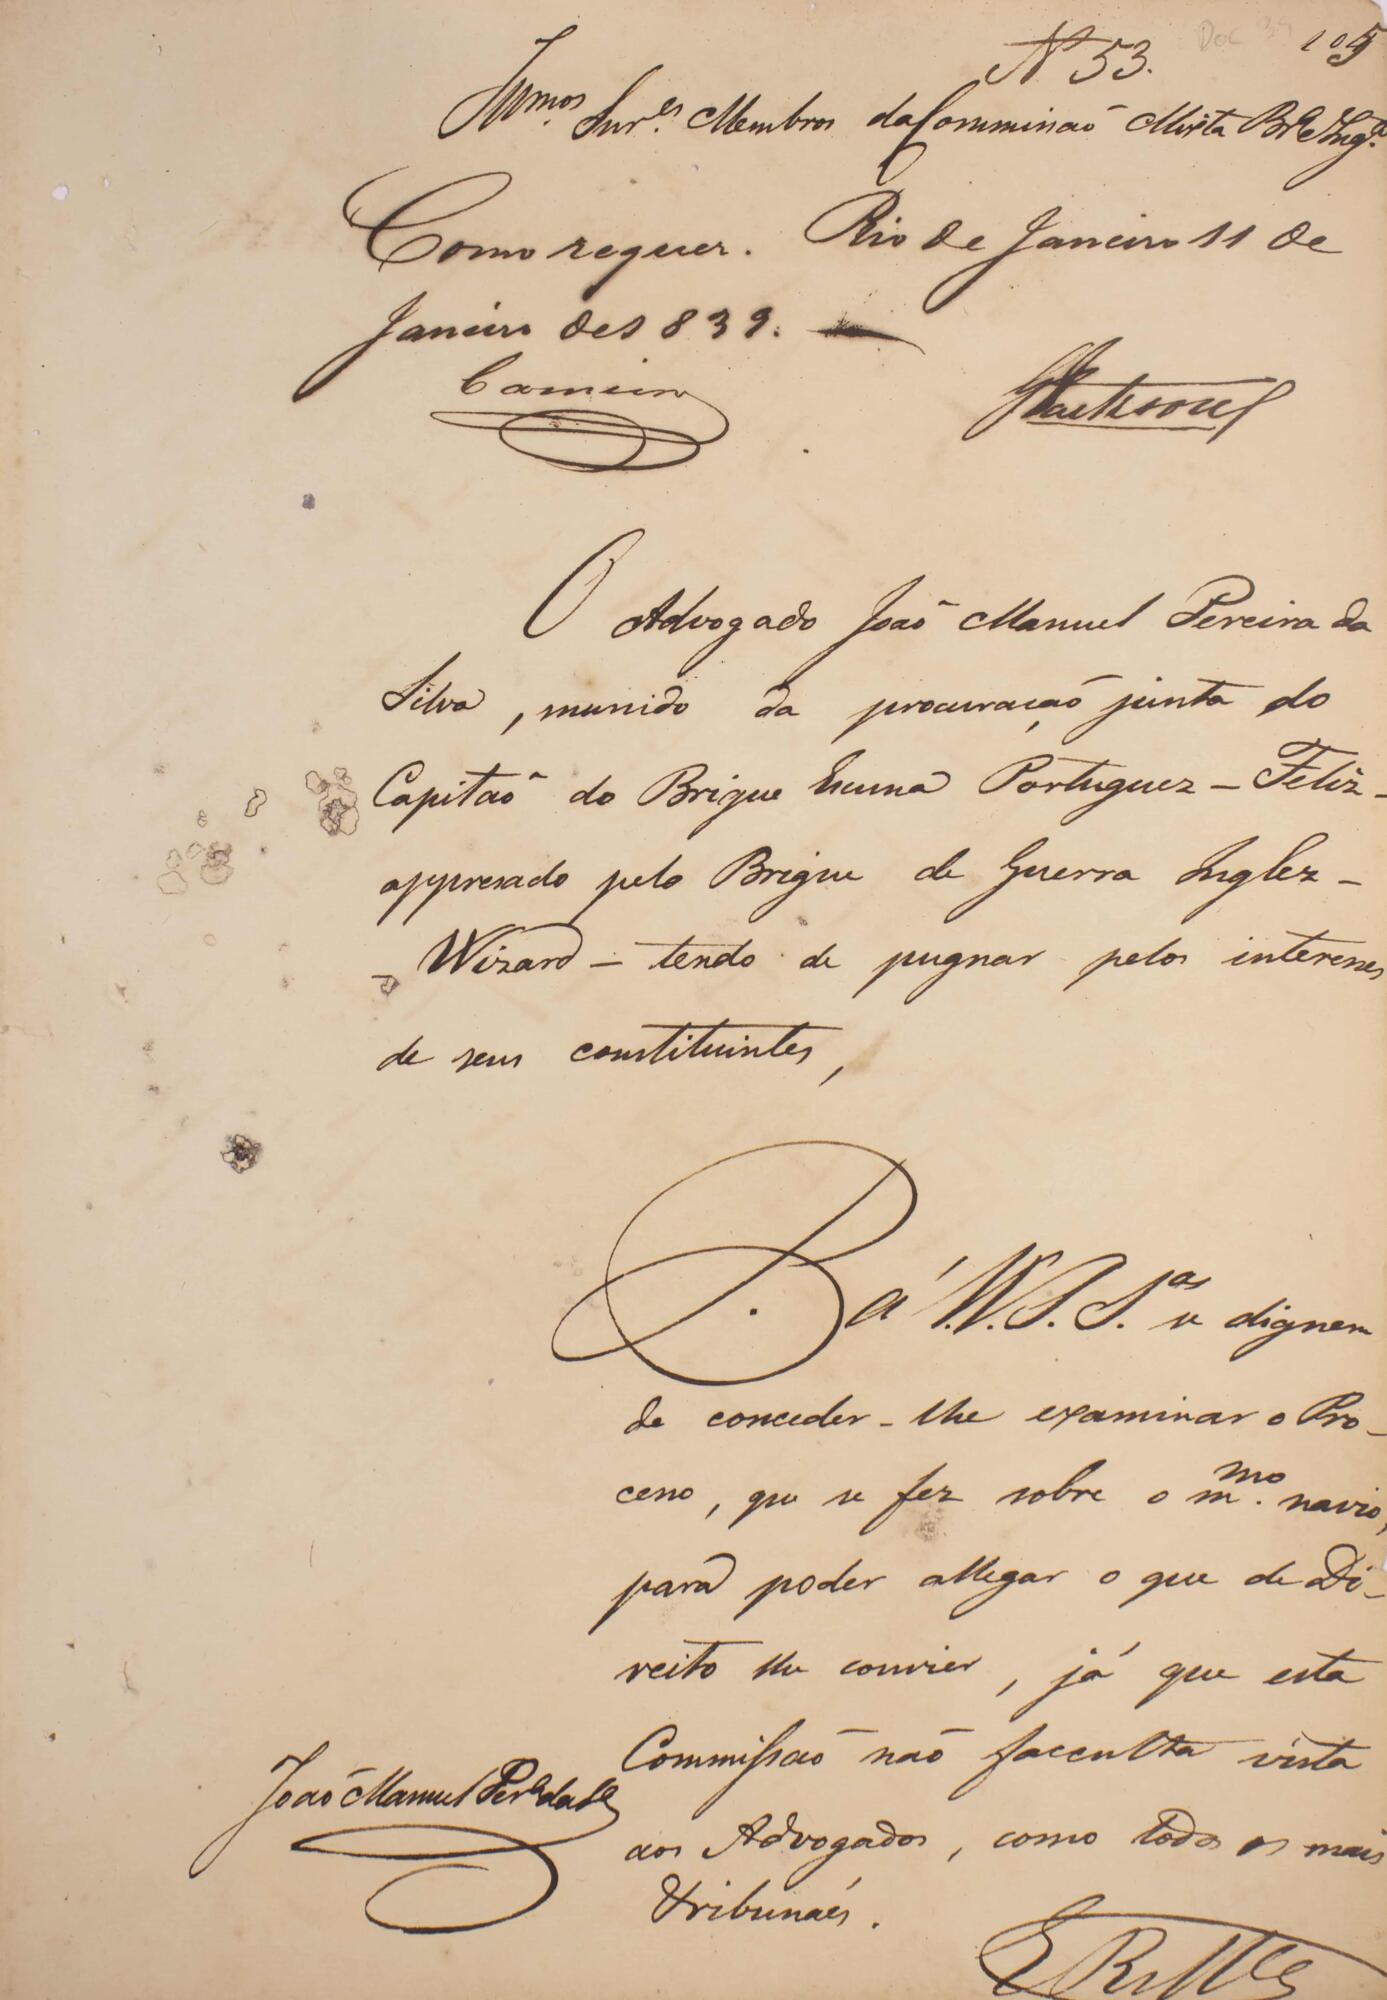 Doc 34 105
Nº 53.
Illmos. Snr.es Membros da Commissaõ Mixta Bra e Ing.a
Como requer. Rio de Janeiro 11 de
Janeiro de 1839.
Carneiro
O Advogado Joaõ Manuel Pereira da
Silva, munido da procuraçaõ junta do
Capitaõ do Brigue Escuna Portuguez – Feliz –
appresado pelo Brigue de Guerra Inglez –
– Wizard – tendo de pugnar pelos interesses
de seus constituintes,
P. á V.V. S. S.as se dignem
de conceder-lhe examinar o Pro-
cesso, que se fez sobre o m.mo navio,
para poder allegar o que de Di-
reito lhe convier, já que esta
Commissaõ naõ faculta vista
aos Advogados, como todos os mais
Tribunáes.
Joaõ Manuel Per.a da S.a
E R M.ce